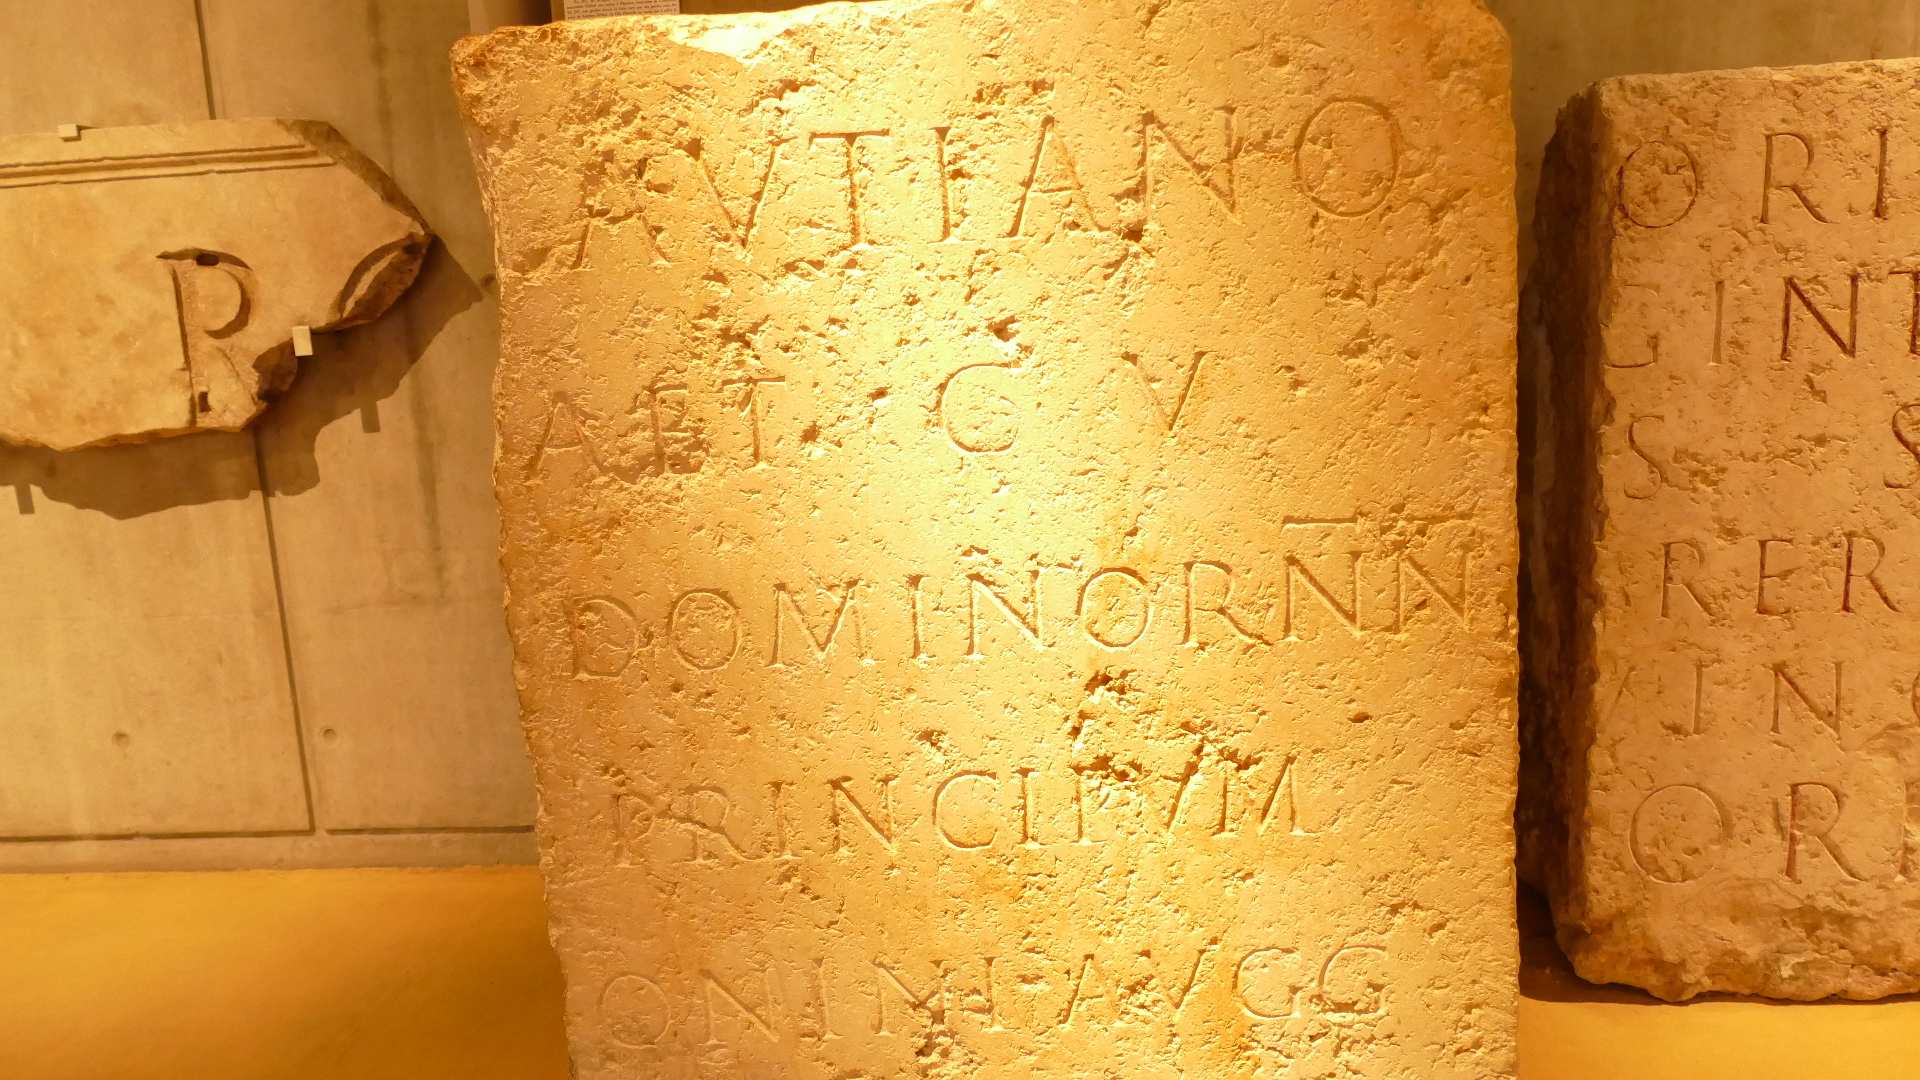 R
AVTIANO
C V
DOMINOR N̅N̅
PRINCIPVM
ONINI AVGG
ORI
GINT
S S
RER
INC
ORI